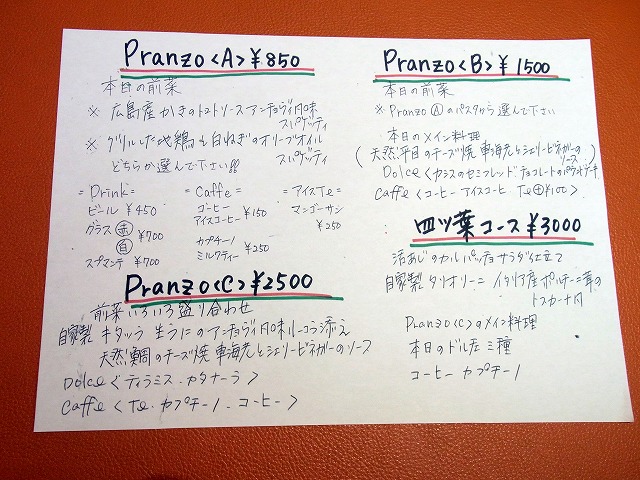 Pranzo〈A〉¥850
本日の前菜
※ 広島産かきのトマトソースアンチョヴィ風味
スパゲッティ
※ グリルした地鶏と白ねぎのオリーブオイル
スパゲッティ
どちらか選んで下さい!!
=Drink=
ビール ¥450
グラス 赤 白 ¥700
スプマンテ ¥700
=Caffe=
コーヒー
アイスコーヒー ¥150
カプチーノ
ミルクティー ¥250
=アイスTe=
マンゴーサン
¥250
Pranzo〈C〉¥2500
前菜いろいろ盛り合わせ
自家製 キタッラ 生うにのアンチョヴィ風味ルーコラ添え
天然鯛のチーズ焼 車海老とシェリービネガーのソース
Dolce〈ティラミス・カタナーラ〉
Caffe〈Te・カプチーノ・コーヒー〉
Pranzo〈B〉¥1500
本日の前菜
※ Pranzo Ⓐのパスタから選んで下さい
本日のメイン料理
(天然平目のチーズ焼 車海老とシェリービネガーの
ソース)
Dolce〈カシスのセミフレッド チョコレートのパウンドケーキ
Caffe〈コーヒー アイスコーヒー Te⊕¥100〉
四ツ葉コース ¥3000
活あじのカルパッチョサラダ仕立て
自家製 タリオリーニ イタリア産ポルチーニ茸の
トスカーナ風
Pranzo〈C〉のメイン料理
本日のドルチェ三種
コーヒー カプチーノ